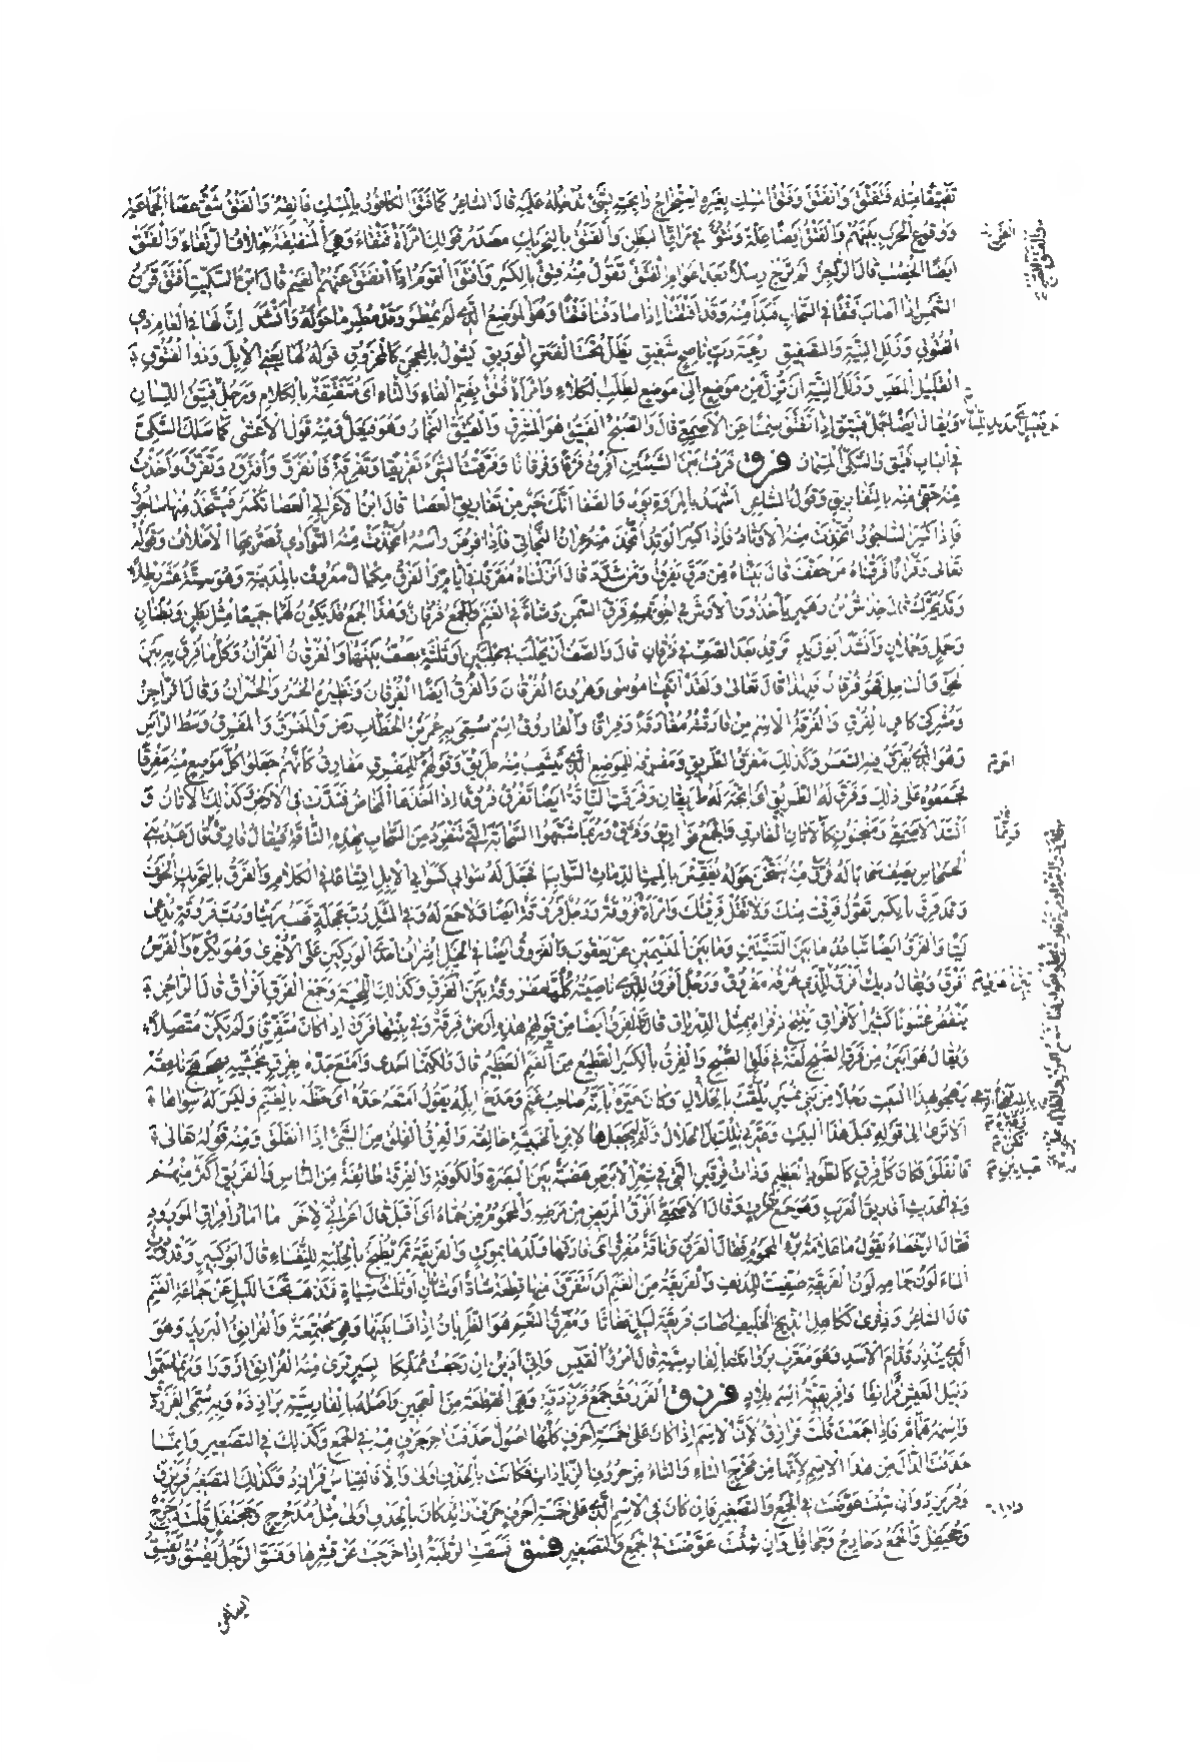 تفتيقا مثله فتفتق وانفتق وفتق المسك بغيره استخراج رائحته بشئ تدخله عليه قال الشاعر كما فتق الكافور بالمسك فاتقه والفتق شق عصا الجماعة
ووقوع الحرب بينهم والفتق ايضا علة ونتوء في مراق البطن والفتق بالتحريك مصدر قولك امرأة فتقاء وهي المنفتقة خلاف الرتقاء والفتق
ايضا الخصب قال الراجز لم ترج رسلا بعد اعوام الفتق تقول منه فتق بالكسر وافتق القوم اذا انفتق عنهم الغيم قال ابن السكيت افتق قرن
الشمس اذا اصاب فتقا في السحاب فبدا منه وقد افتقنا اذا صادفنا فتقا وهو الموضع الذي لم يمطر وقد مطر ما حوله وانشد ان لها في العام ذي
الفتوق وزلل النية والتصفيق رعية رب ناصح شفيق يظل تحت الفنن الوريق يشول بالمحجن كالمحروق قوله لها يعني الابل وذو الفتوق
القليل المطر وزلل النية ان تزل من موضع الى موضع لطلب الكلاء وامرأة فتق بضم الفاء والتاء اي متفتقة بالكلام ورجل فتيق اللسان
ويقال ايضا جمل فتيق اذا تفتق سمنا عن الاصمعي قال والصبح الفتيق هو المشرق والفيتق النجار وهو فيعل ومنه قول الاعشى كما سلك السكي
في الباب فيتق والسكي المسمار فرق فرقت بين الشيئين افرق فرقا وفرقانا وفرقت الشئ تفريقا وتفرقة فانفرق وافترق وتفرق واخذت
منه حقي منه بالتفاريق وقول الشاعر اشهد بالمروة يوما والصفا انك خير من تفاريق العصا قال ابن الاعرابي العصا تكسر فيتخذ منها ساجور
فاذا كسر الساجور اتخذت منه الاوتاد فاذا كسر الوتد اتخذ منه عران البخاتي فاذا فرض رأسه اتخذت منه التوادي تصر بها الاخلاف وقوله
تعالى وقرآنا فرقناه من خفف قال بيناه من فرق يفرق ومن شدد قال انزلناه مفرقا في ايام والفرق مكيال معروف بالمدينة وهو ستة عشر رطلا
وقد يحرك قال خداش بن زهير يأخذون الارش في اخوتهم فرق السمن وشاة في الغنم والجمع فرقان وهذا الجمع قد يكون لهما جميعا مثل بطن وبطنان
وحمل وحملان وانشد ابو زيد ترفد بعد الصف في فرقان قال والصف ان تحلب في محلبين او ثلثة تصف بينها والفرقان القرآن وكل ما فرق به بين
الحق والباطل فهو فرقان فلهذا قال تعالى ولقد آتينا موسى وهرون الفرقان والفرق ايضا الفرقان ونظيره الخسر والخسران وقال الراجز
ومشركي كافر بالفرق والفرقة الاسم من فارقته مفارقة وفراقا والفاروق اسم سمي به عمر بن الخطاب رضه والمفرق والمفرق وسط الرأس
وهو الذي يفرق فيه الشعر وكذلك مفرق الطريق ومفرقه للموضع الذي يتشعب منه طريق وقولهم للمفرق مفارق كأنهم جعلوا كل موضع منه مفرقا
فجمعوه على ذلك وفرق له الطريق اي اتجه له طريقان وفرقت الناقة ايضا تفرق فروقا اذا اخذها المخاض فندت في الارض وكذلك الاتان و
انشد الاصمعي ومنجنون كالاتان الفارق والجمع فوارق وفرق وربما شبهوا السحابة التي تنفرد من السحاب بهذه الناقة فيقال فارق وقال عبد بني
الحسحاس يصف سحابا له فرق منه ينتجن حوله يفقئن بالميث الدماث السوابيا فجعل له سوابي كسوابي الابل اتساعا في الكلام والفرق بالتحريك الخوف
وقد فرق بالكسر تقول فرقت منك ولا تقل فرقتك وامرأة فروقة ورجل فروقة ايضا ولا جمع له وفي المثل رب عجلة تهب ريثا ورب فروقة يدعى
ليثا والفرق ايضا تباعد ما بين الثنيتين وما بين المنسمين عن يعقوب والفرق ايضا في الخيل اشراف احدى الوركين على الاخرى وهو يكره والفرس
افرق ويقال ديك افرق للذي عرفه مفروق ورجل افرق للذي ناصيته كأنها مفروقة بين الفرق وكذلك اللحية وجمع الفرق افراق قال الراجز
ينفض عثنونا كثير الافراق ينتح ذفراه بمثل الدرياق قال والفرق ايضا من قولهم هذه ارض فرقة وفي نبتها فرق اذا كان متفرقا ولم يكن متصلا
ويقال هو ابين من فرق الصبح لغة في فلق الصبح والفرق بالكسر القطيع من الغنم العظيم قال ولكنما اجدى وامتع جده بفرق يخشيه بهجهج ناعقه
يهجو بهذا البيت رجلا من بني نمير يلقب بالحلال وكان عيره بابله صاحب غنم ومدح ابله يقول امتعه جده اي حظه بالغنم وليس له سواها
الا ترى الى قوله قبل هذا البيت وعيرني الابل الحلال ولم يكن ليجعلها لابن الخبيثة خالقه والفرق الفلق من الشئ اذا انفلق ومنه قوله تعالى
فانفلق فكان كل فرق كالطود العظيم وذات فرقين التي في شعر الابرص هضبة بين البصرة والكوفة والفرقة طائفة من الناس والفريق اكثر منهم
وفي الحديث افاريق العرب وهو جمع افراق وقال الاصمعي افرق المريض من مرضه والمحموم من حماه اي اقبل قال اعرابي لآخر ما امار افراق المورود
فقال الرحضاء يقول ما علامة برء المحموم فقال العرق وناقة مفرق اي فارقها ولدها بموت والفريقة تمر يطبخ بالحلبة للنفساء قال ابو كبير وقد وردت
الماء لون جمامه لون الفريقة صفيت للمدنف والفريقة من الغنم ان تتفرق منها قطعة شاة او شاتان او ثلث شياه فتذهب تحت الليل عن جماعة الغنم
قال الشاعر وذفرى ككاهل ذيخ الخليف اصاب فريقة ليل فعاثا ومفرق النعم هو الظربان اذا فسا بينها وهي مجتمعة والفرانق البريد وهو
الذي ينذر قدام الاسد وهو معرب بروانك بالفارسية قال امرؤ القيس واني اذين ان رجعت مملكا بسير ترى منه الفرانق ازورا وربما سموا
دليل الجيش فرانقا وافريقية اسم بلاد فرزق الفرزدق جمع فرزدقة وهي القطعة من العجين واصله بالفارسية برازده وبه سمي الفرزدق
واسمه همام فاذا جمعت قلت فرازق لأن الاسم اذا كان على خمسة احرف كلها اصول حذفت آخر حرف منه في الجمع وكذلك في التصغير وانما
حذفت الدال من هذا الاسم لانها من مخرج التاء والتاء من حروف الزيادات فكانت بالحذف اولى والقياس فرازد وكذلك التصغير فريزق
وفريزد وان شئت عوضت في الجمع والتصغير فان كان في الاسم الذي على خمسة احرف حرف زائد كان بالحذف اولى مثل مدحرج وجحنفل قلت دحيرج
وجحيفل والجمع دحارج وجحافل وان شئت عوضت في الجمع والتصغير فسق فسقت الرطبة اذا خرجت عن قشرها وفسق الرجل يفسق ويفسق